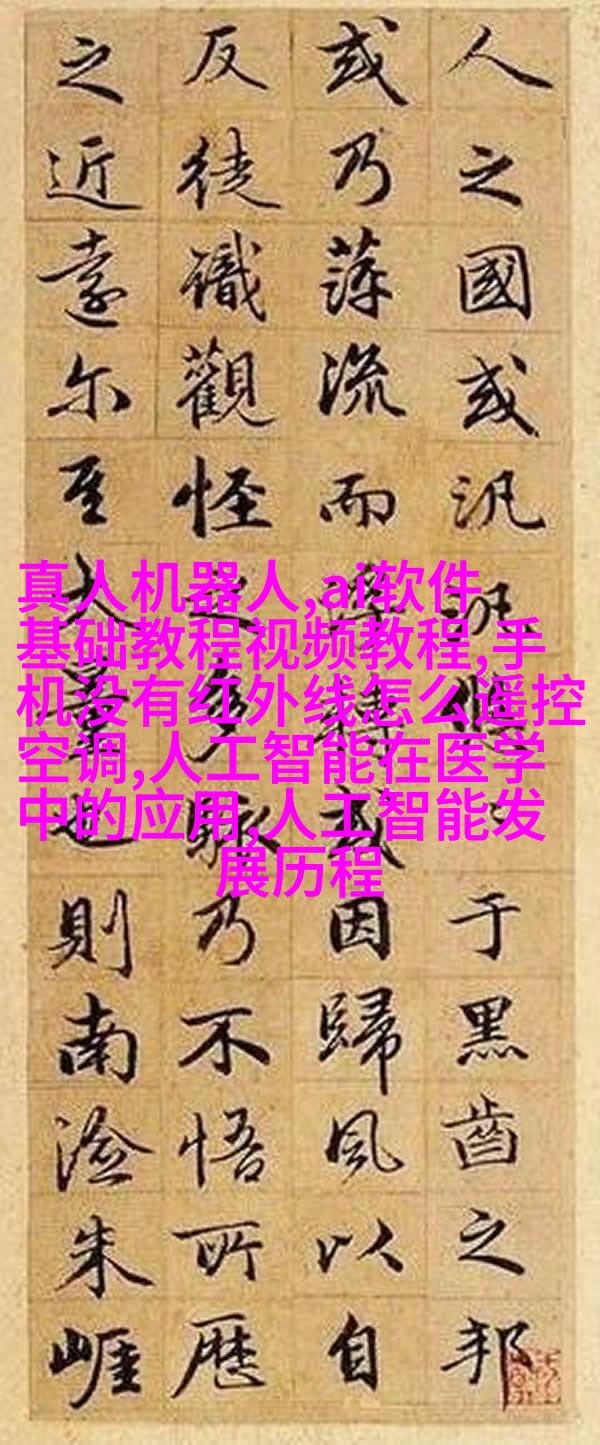 人之國或汎汎悠々于黑齒之邦
或乃萍流而浮轉或因歸風以自
反徒識觀怪之多駭乃不悟所歷
之近遠尔至大量也則南澰朱崕
真人机器人,ai软件
基础教程视频教程,手
机没有红外线怎么遥控
空调,人工智能在医学
中的应用,人工智能发
展历程